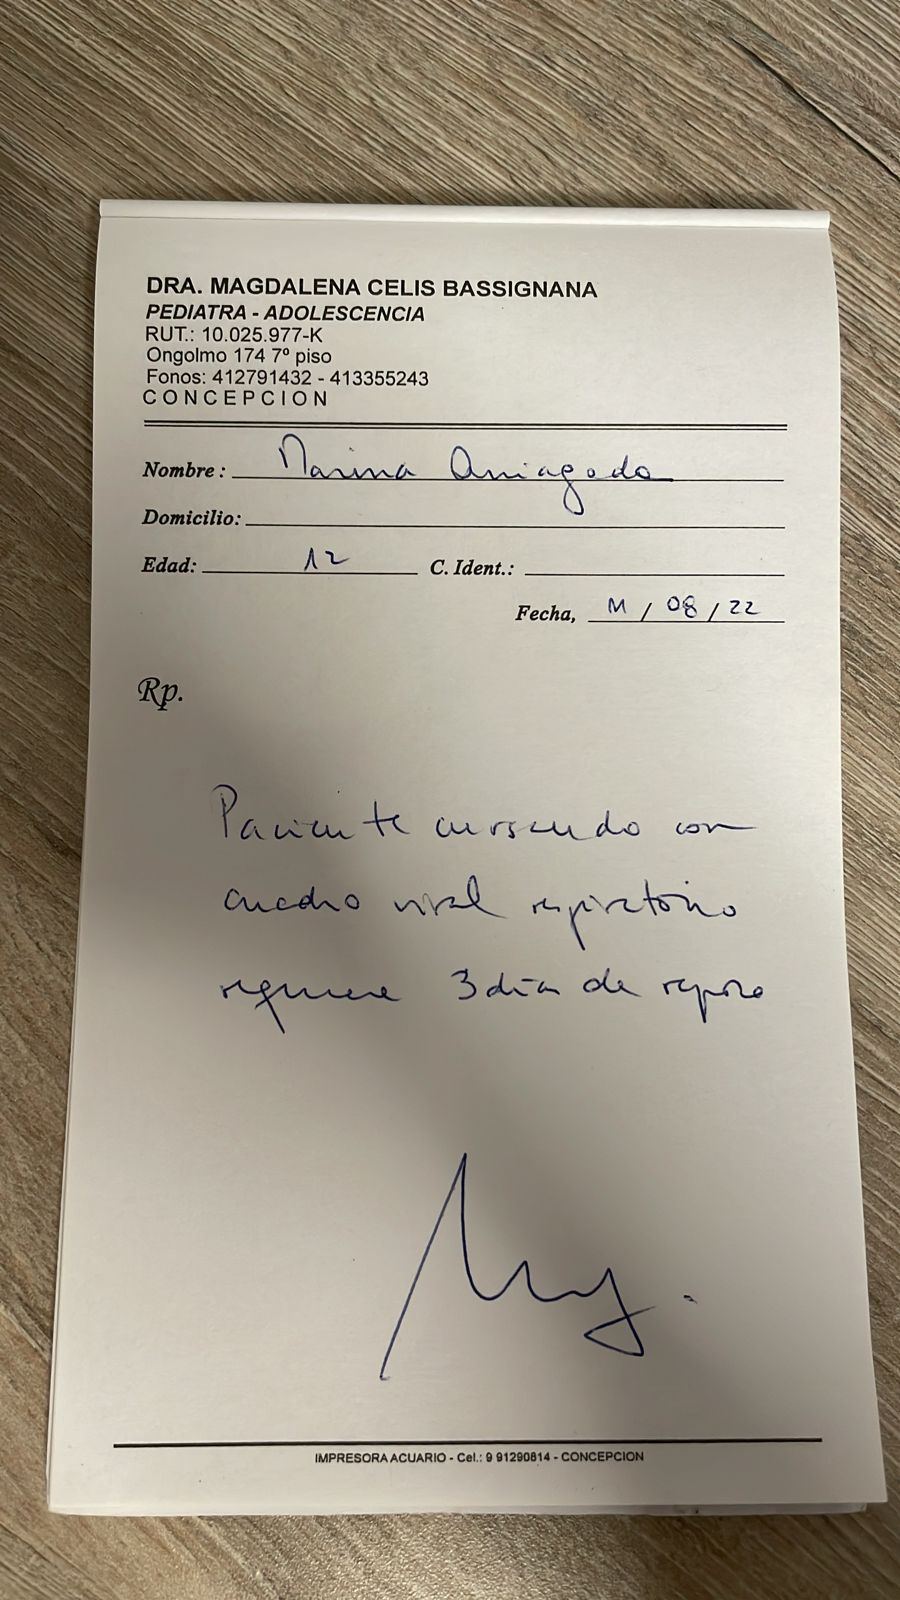 DRA. MAGDALENA CELIS BASSIGNANA
PEDIATRA - ADOLESCENCIA
RUT.: 10.025.977-K
Ongolmo 174 7º piso
Fonos: 412791432 - 413355243
CONCEPCION
Nombre: Marina Arriagada
Domicilio:
Edad: 12 C. Ident.:
Fecha, 11 / 08 / 22
Rp.
Paciente cursando con
cuadro viral respiratorio
requiere 3 días de reposo
IMPRESORA ACUARIO - Cel.: 9 91290814 - CONCEPCION